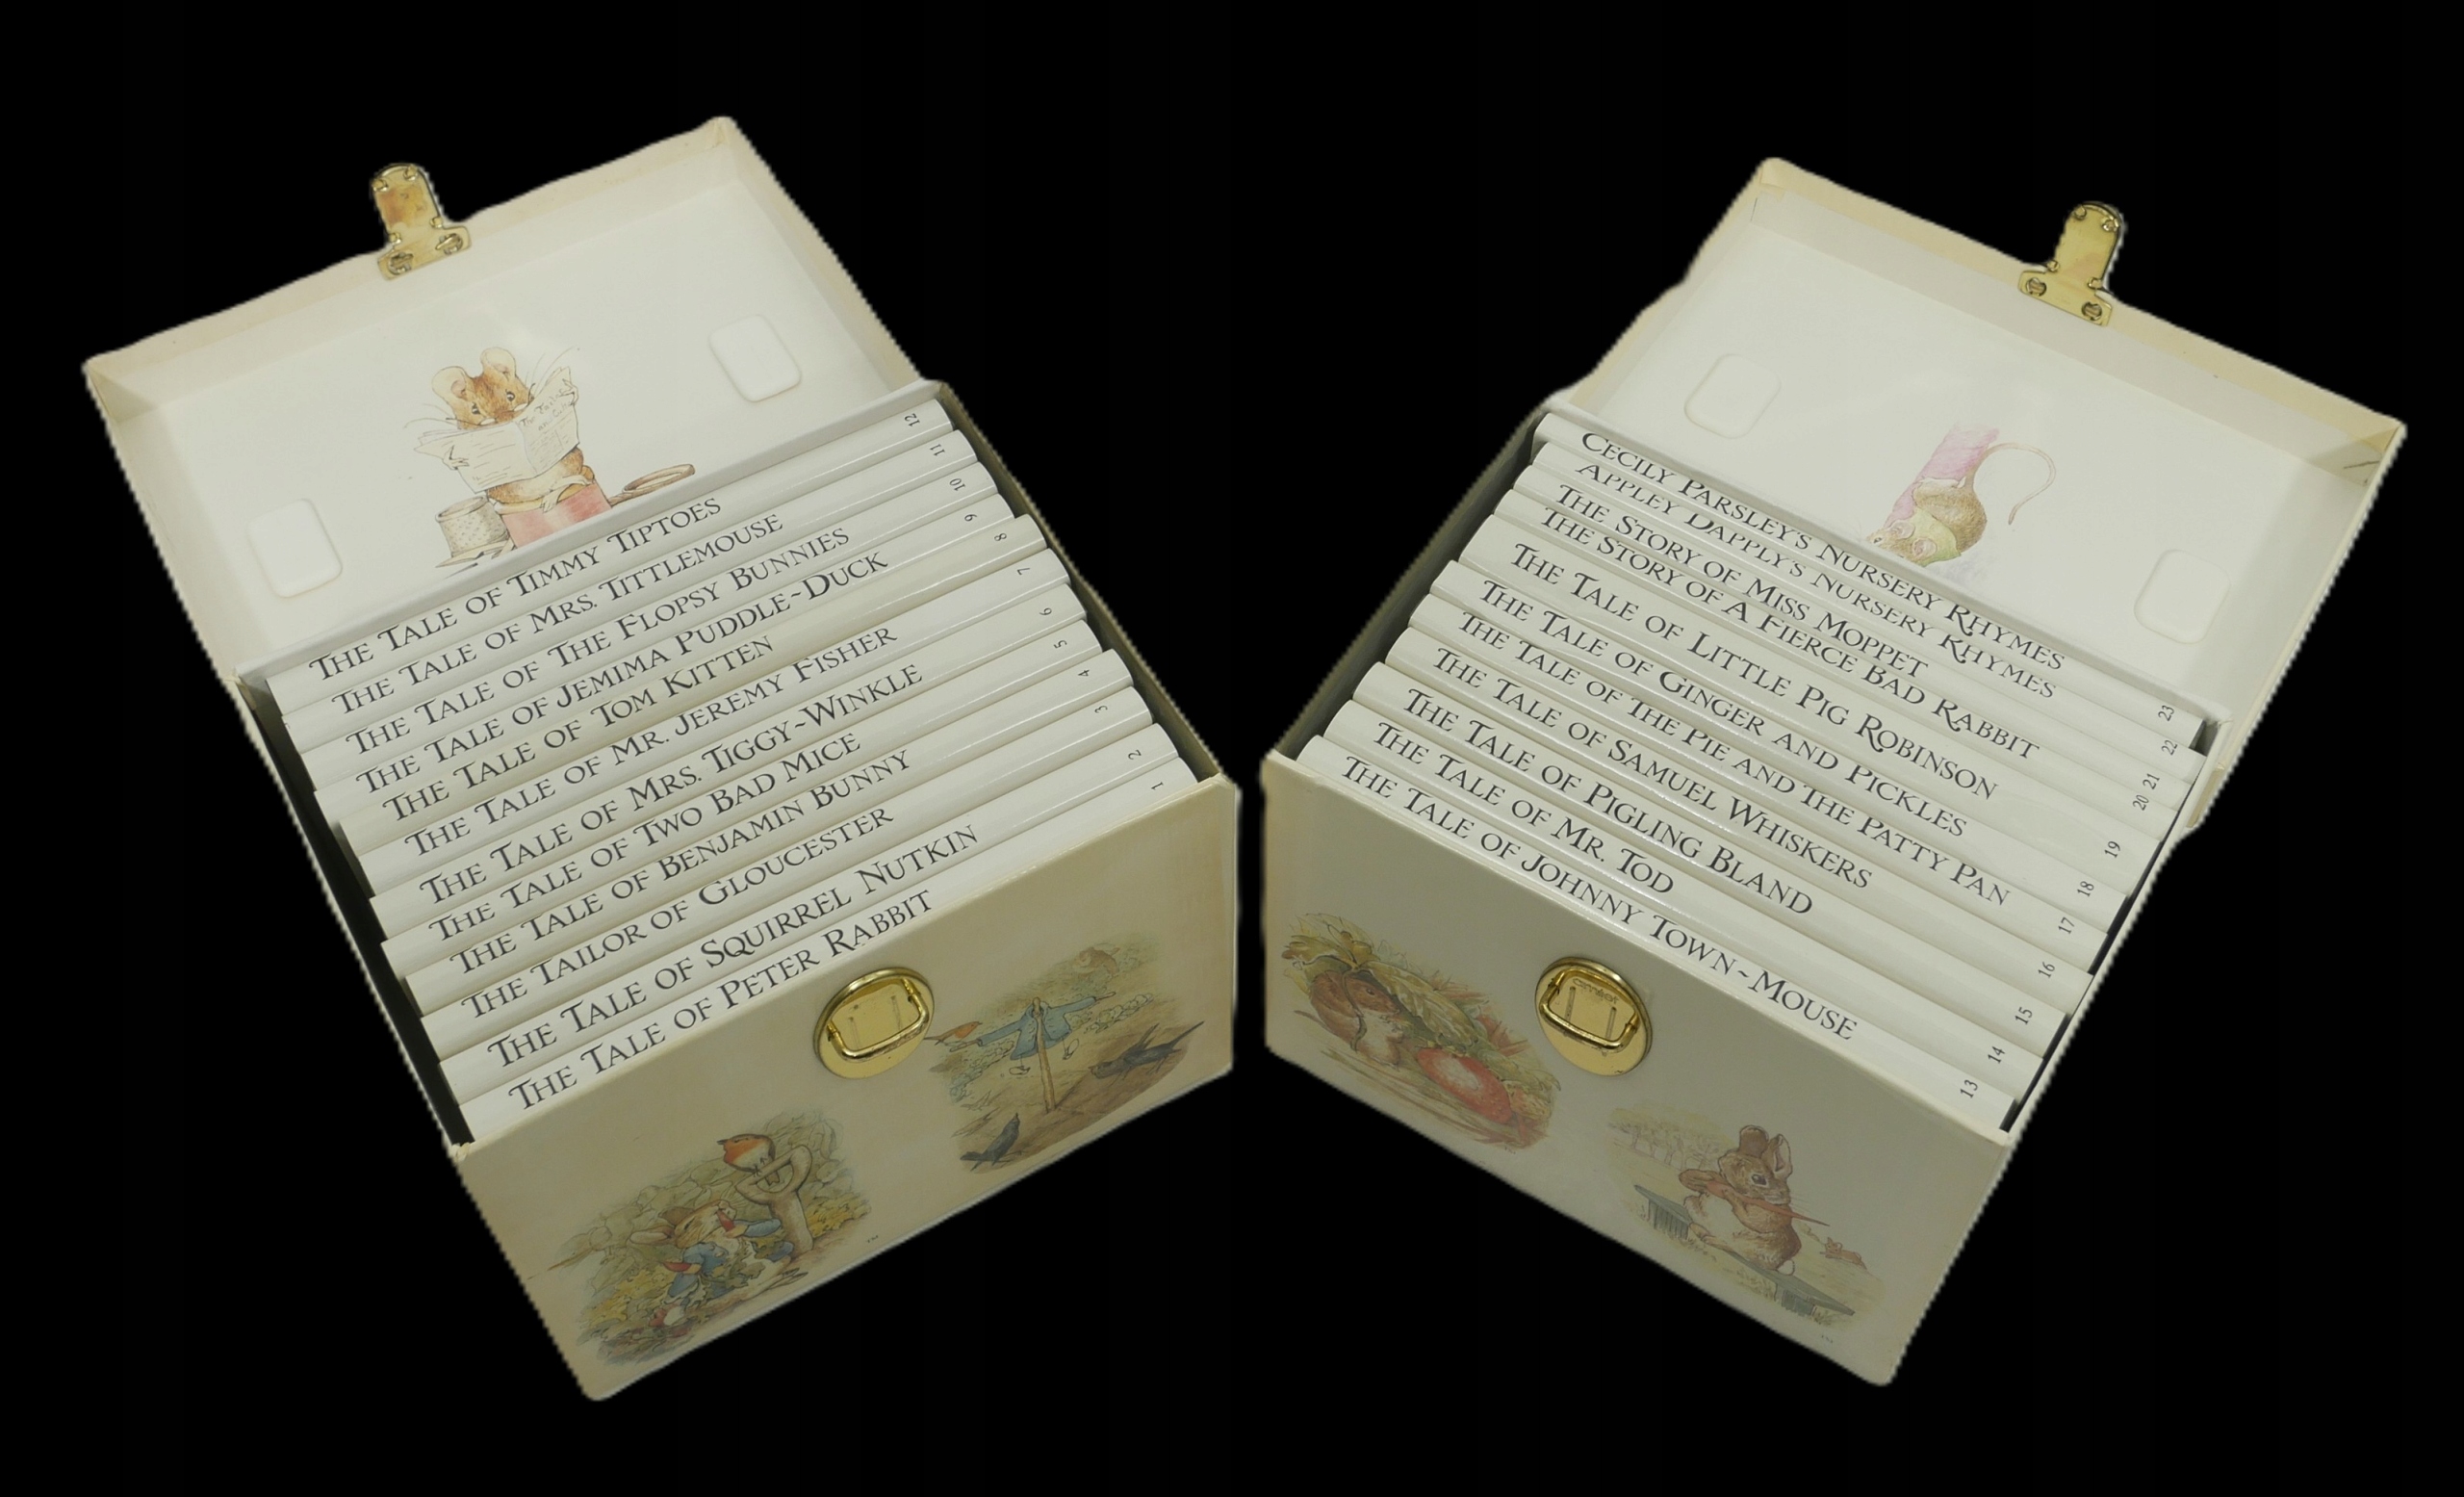 THE TALE OF TIMMY TIPTOES 12
THE TALE OF MRS. TITTLEMOUSE 11
THE TALE OF THE FLOPSY BUNNIES 10
THE TALE OF JEMIMA PUDDLE-DUCK 9
THE TALE OF TOM KITTEN 8
THE TALE OF MR. JEREMY FISHER 7
THE TALE OF MRS. TIGGY-WINKLE 6
THE TALE OF TWO BAD MICE 5
THE TALE OF BENJAMIN BUNNY 4
THE TAILOR OF GLOUCESTER 3
THE TALE OF SQUIRREL NUTKIN 2
THE TALE OF PETER RABBIT 1
CECILY PARSLEY'S NURSERY RHYMES 23
APPLEY DAPPLY'S NURSERY RHYMES 22
THE STORY OF MISS MOPPET 21
THE STORY OF A FIERCE BAD RABBIT 20
THE TALE OF LITTLE PIG ROBINSON 19
THE TALE OF GINGER AND PICKLES 18
THE TALE OF THE PIE AND THE PATTY PAN 17
THE TALE OF SAMUEL WHISKERS 16
THE TALE OF PIGLING BLAND 15
THE TALE OF MR. TOD 14
THE TALE OF JOHNNY TOWN-MOUSE 13